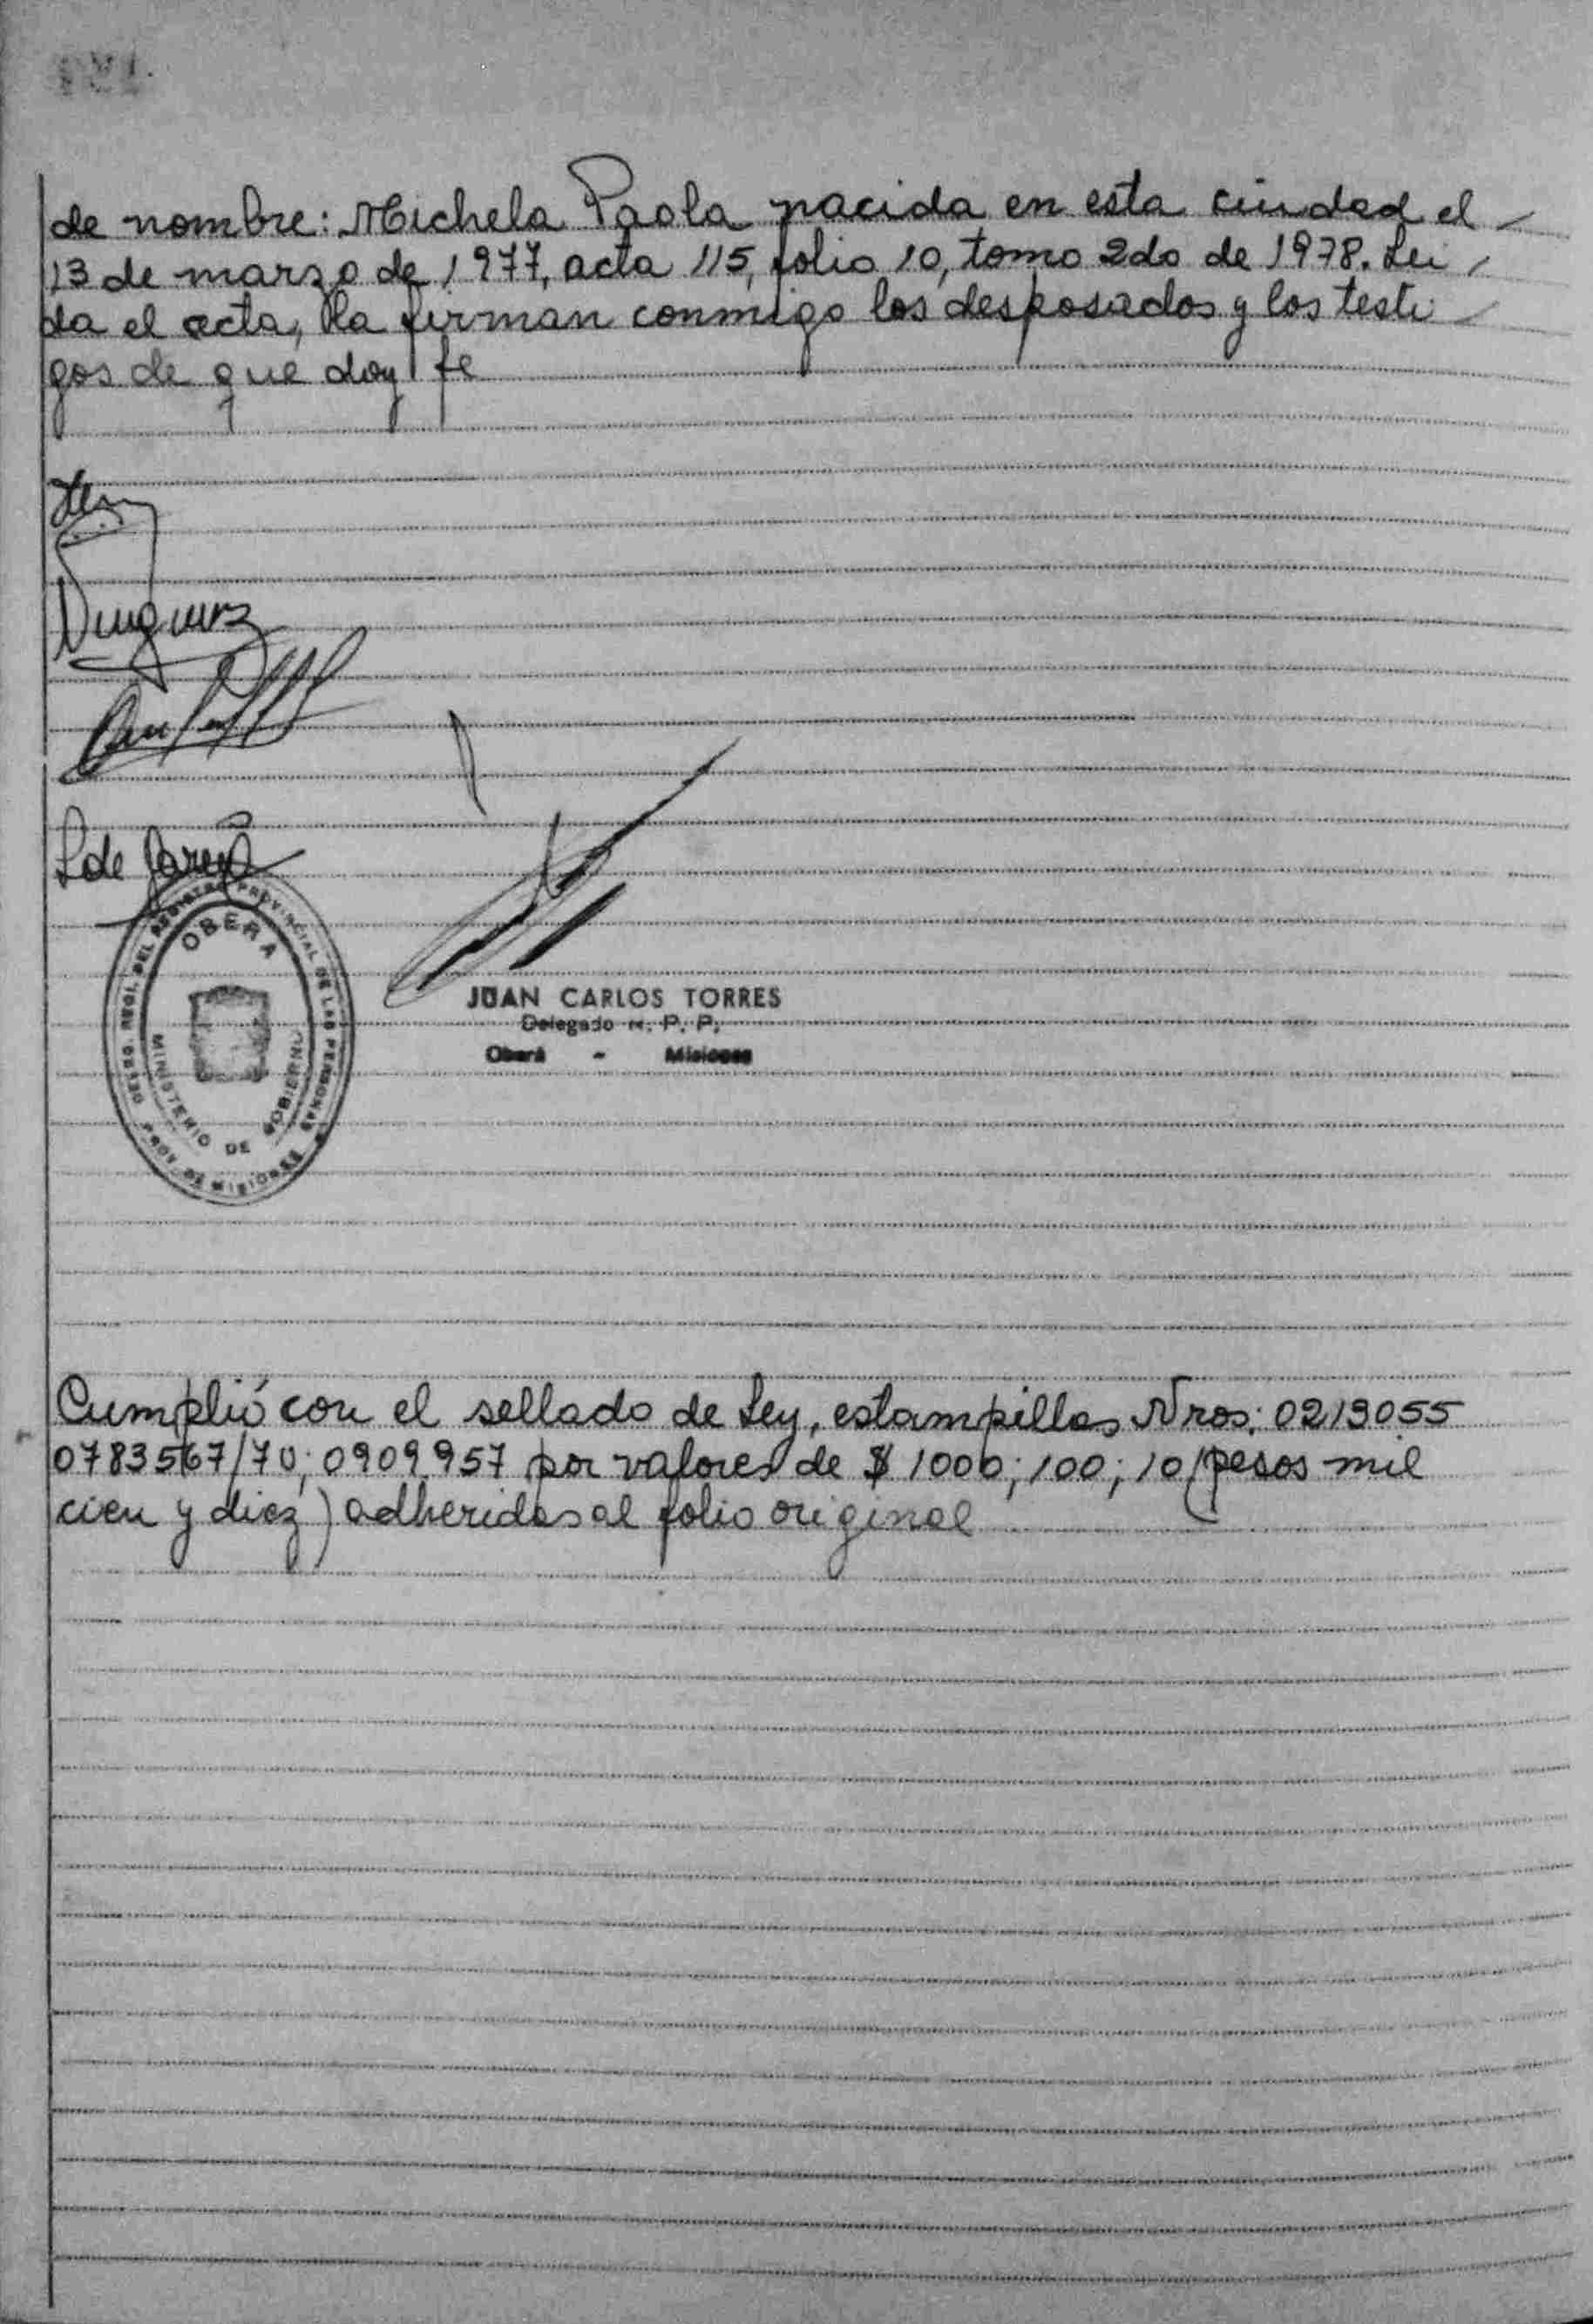 de nombre: Michela Paola nacida en esta ciudad el
13 de marzo de 1977, acta 115, folio 10, tomo 2do de 1978. Lei
da el acta, la firman conmigo los desposados y los testi
gos de que doy fe
S de
OBERA
DELEG. REGI. DEL REGISTRO PROVINCIAL DE LAS PERSONAS
MINISTERIO DE GOBIERNO
PROV. DE MISIONES
JUAN CARLOS TORRES
Delegado R. P. P.
Oberá - Misiones
Cumplió con el sellado de Ley, estampillas Nros: 0219055
0783567/70; 0909957 por valores de $ 1000; 100; 10 (pesos mil
cien y diez) adheridas al folio original